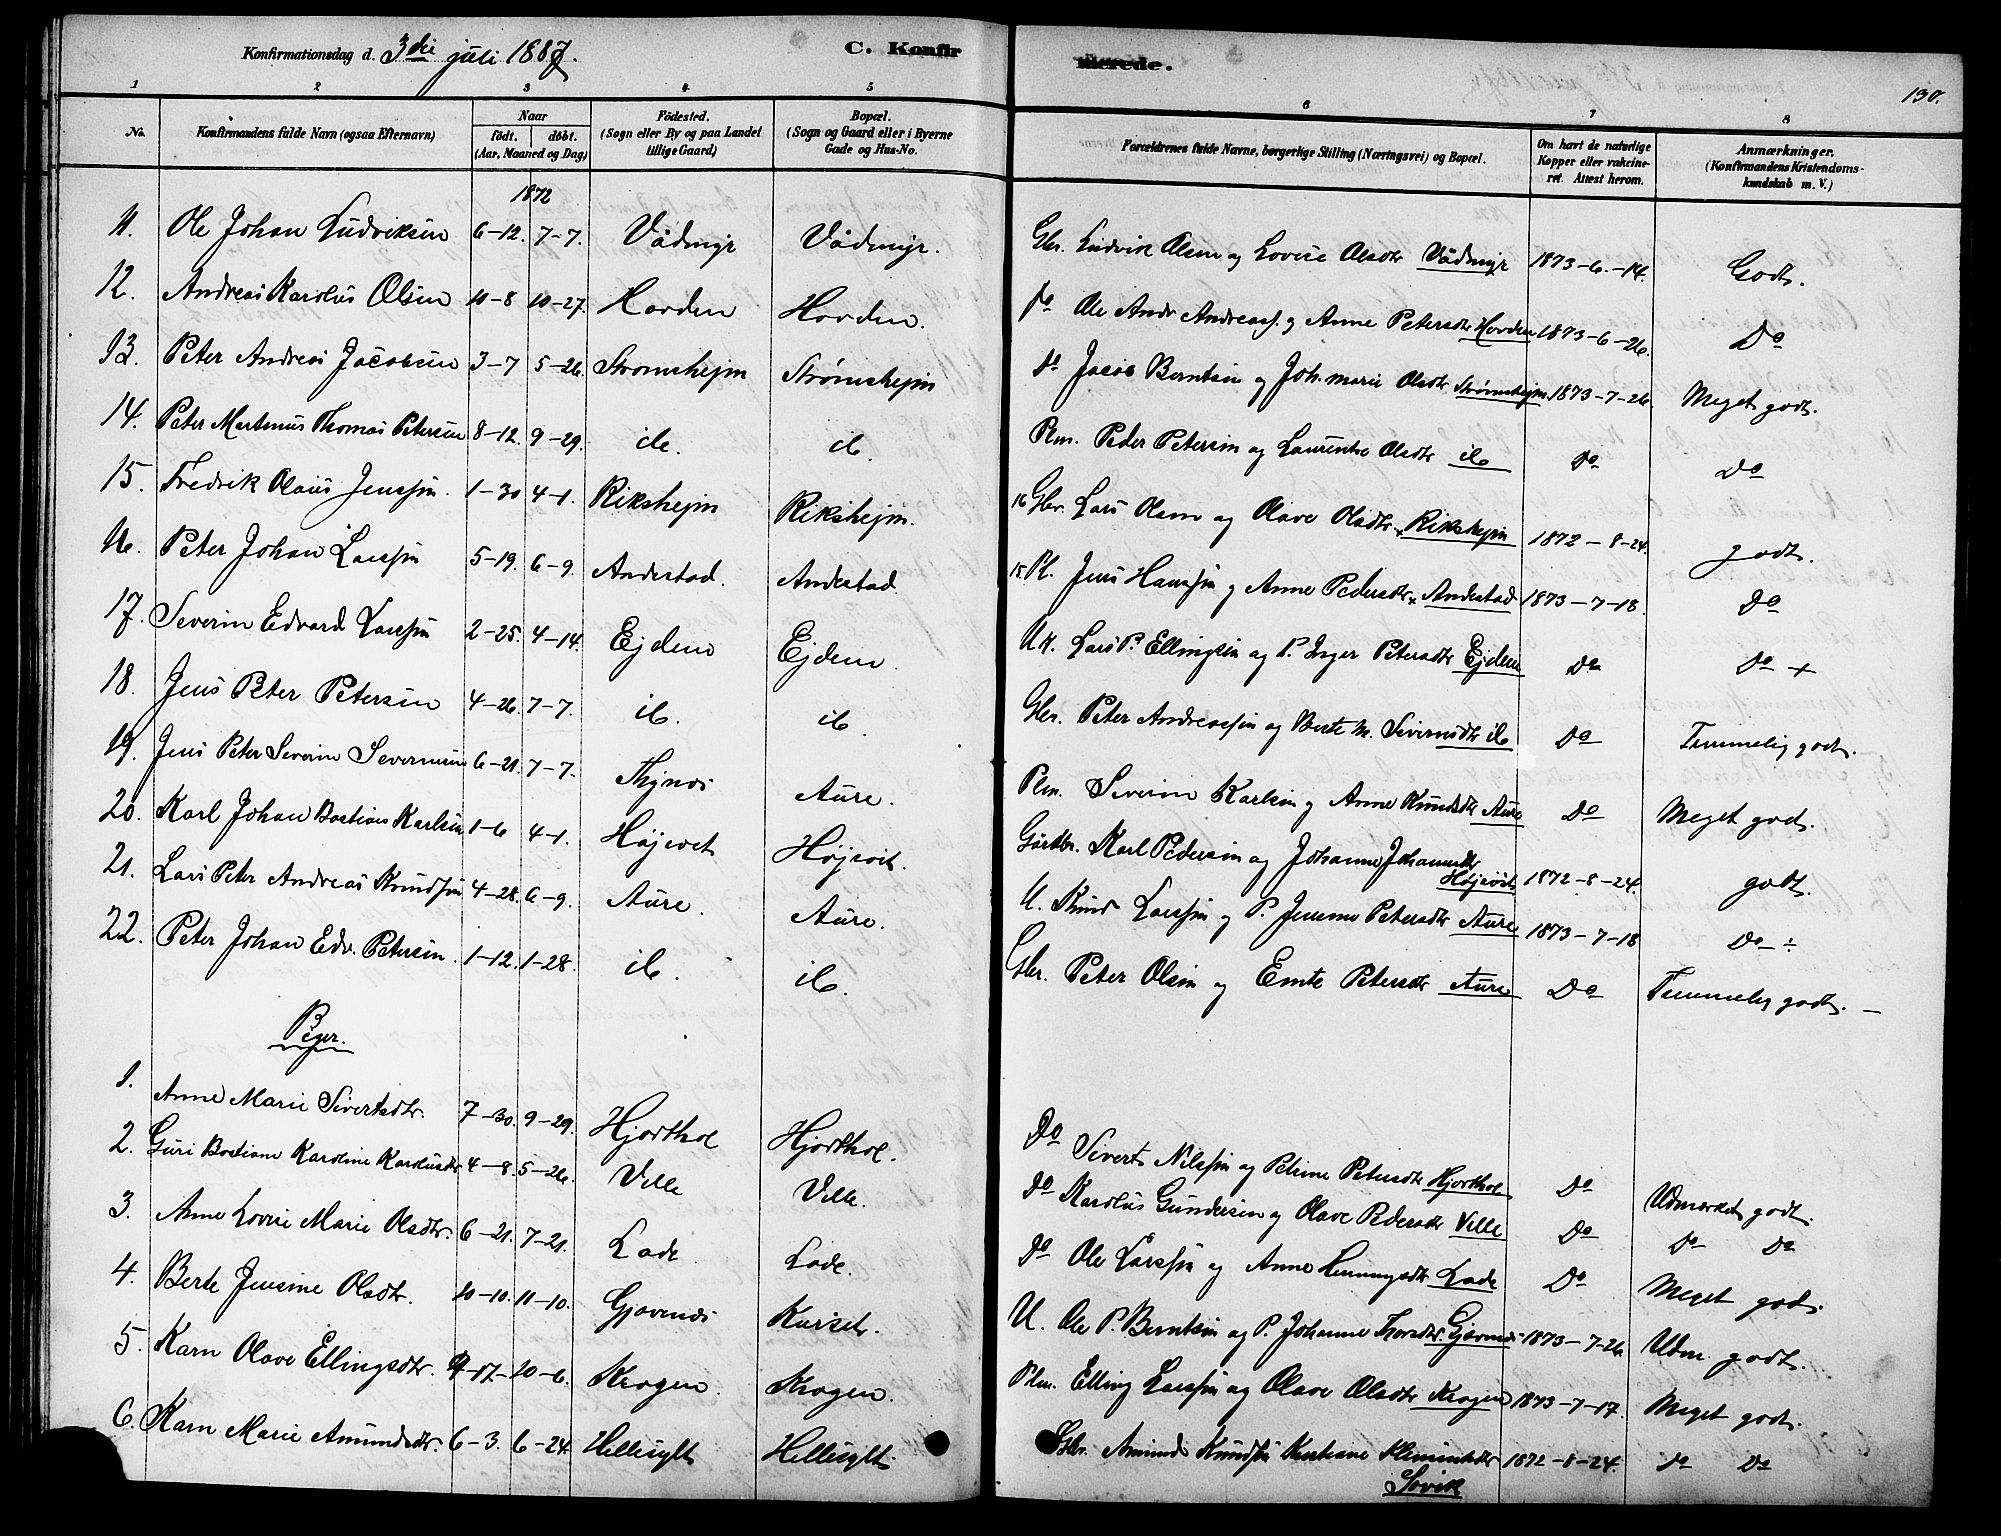 Konfirmationsdag d. 3die juli 1887.
C. Konfirmerede.
130.
1 2 3 4 5 6 7 8
No.
Konfirmandens fulde Navn (ogsaa Efternavn)
Naar
födt. döbt.
(Aar, Maaned og Dag)
Födested.
(Sogn eller By og paa Landet
tillige Gaard)
Bopæl.
(Sogn og Gaard eller i Byerne
Gade og Hus-No.
Forældrenes fulde Navne, borgerlige Stilling (Næringsvei) og Bopæl.
Om havt de naturlige
Kopper eller vakcine-
ret. Attest herom.
Anmærkninger.
(Konfirmandens Kristendoms-
kundskab m. V.)
1872
11. Ole Johan Ludviksen 6-12. 7-7. Vådmyr Vådmyr. Gbr. Ludvik Olsen og Lovise Olsdtr Vådmyr 1873-6-14. Godt.
12. Andreas Karolus Olsen 10-8 10-27. Hovden Hovden. do Ole Andr Andreass. og Anne Petersdtr Hovden 1873-6-26. Do
13. Peter Andreas Jacobsen 3-7 5-26. Strømshejm Strømshejm do Jacob Berntsen og Joh. marie Olsdtr Strømshejm 1873-7-26. Meget godt.
14. Peter Martinus Thomas Petersen 8-12. 9-29. ib. ib. Plm. Peder Petersen og Laurentse Olsdtr ib Do Do
15. Fredrik Olaus Jenssen. 1-30 4-1. Rikshejm Rikshejm. 16 Gbr. Lars Olsen og Olave Olsdtr. x Rikshejm 1872-8-24. godt.
16. Peter Johan Larssen 5-19. 6-9. Andestad. Andestad 15. Pl. Jens Hanssen og Anne Pedersdtr x Andestad 1873-7-18. Do
17. Severin Edvard Larssen 2-25. 4-14. Ejdem Ejdem. U.K. Lars P. Ellingsen og P. Inger Petersdtr Ejdem Do Do +
18. Jens Peter Petersen 4-26. 7-7. ib. ib. Gbr. Peter Andreassen og Berte M. Siversdtr ib Do Temmelig godt.
19. Jens Peter Severin Severinsen 6-21. 7-7. Thynes Aure. Plm. Severin Karlsen og Anne Knudsdtr Aure Do Meget godt.
20. Karl Johan Bastian Karlsen 1-6 4-1. Højevet Højevet. Gårdbr. Karl Pedersen og Johanne Johannesdtr
Højevet 1872-8-24. godt.
21. Lars Peter Andreas Knudsen 4-28. 6-9. Aure. Aure. U. Knud Larssen og P. Jensine Petersdtr Aure 1873-7-18 Do ÷
22. Peter Johan Edv. Petersen. 1-12. 1-28. ib. ib. Gbr. Peter Olsen og Emte Petersdtr Aure Do Temmelig godt. -
Piger.
1. Anne Marie Sivertsdtr. 7-30. 9-29. Hjorthol Hjorthol. Do Sivert Nilssen og Petrine Petersdtr Hjorthol Do Udmærket godt.
2. Guri Bastiane Karoline Karolusdtr 4-8. 5-26. Velle Velle. do Karolus Gundersen og Olave Pedersdtr Velle Do Do Do
3. Anne Lovise Marie Olsdtr. 6-21. 7-21. Lade. Lade. do Ole Larssen og Anne Henningsdtr Lade Do Meget godt.
4. Berte Jensine Olsdtr. 10-10. 11-10. Gjævenes Kurset. U. Ole P. Berntsen og P. Johanne Thorsdtr. Gjævenes 1873-7-26. Udm. godt.
5. Karn Olave Ellingsdtr. 9-17- 10-6. Krogen. Krogen. Plm. Elling Larssen og Olave Olsdtr Krogen 1873-7-17. Meget godt.
6. Karn Marie Amundsdtr. 6-3. 6-24. Hellesylt Hellesylt. Gbr. Amund Knudsen Kristiane Klemmetsdtr
Søvik 1872-8-24. Do Do